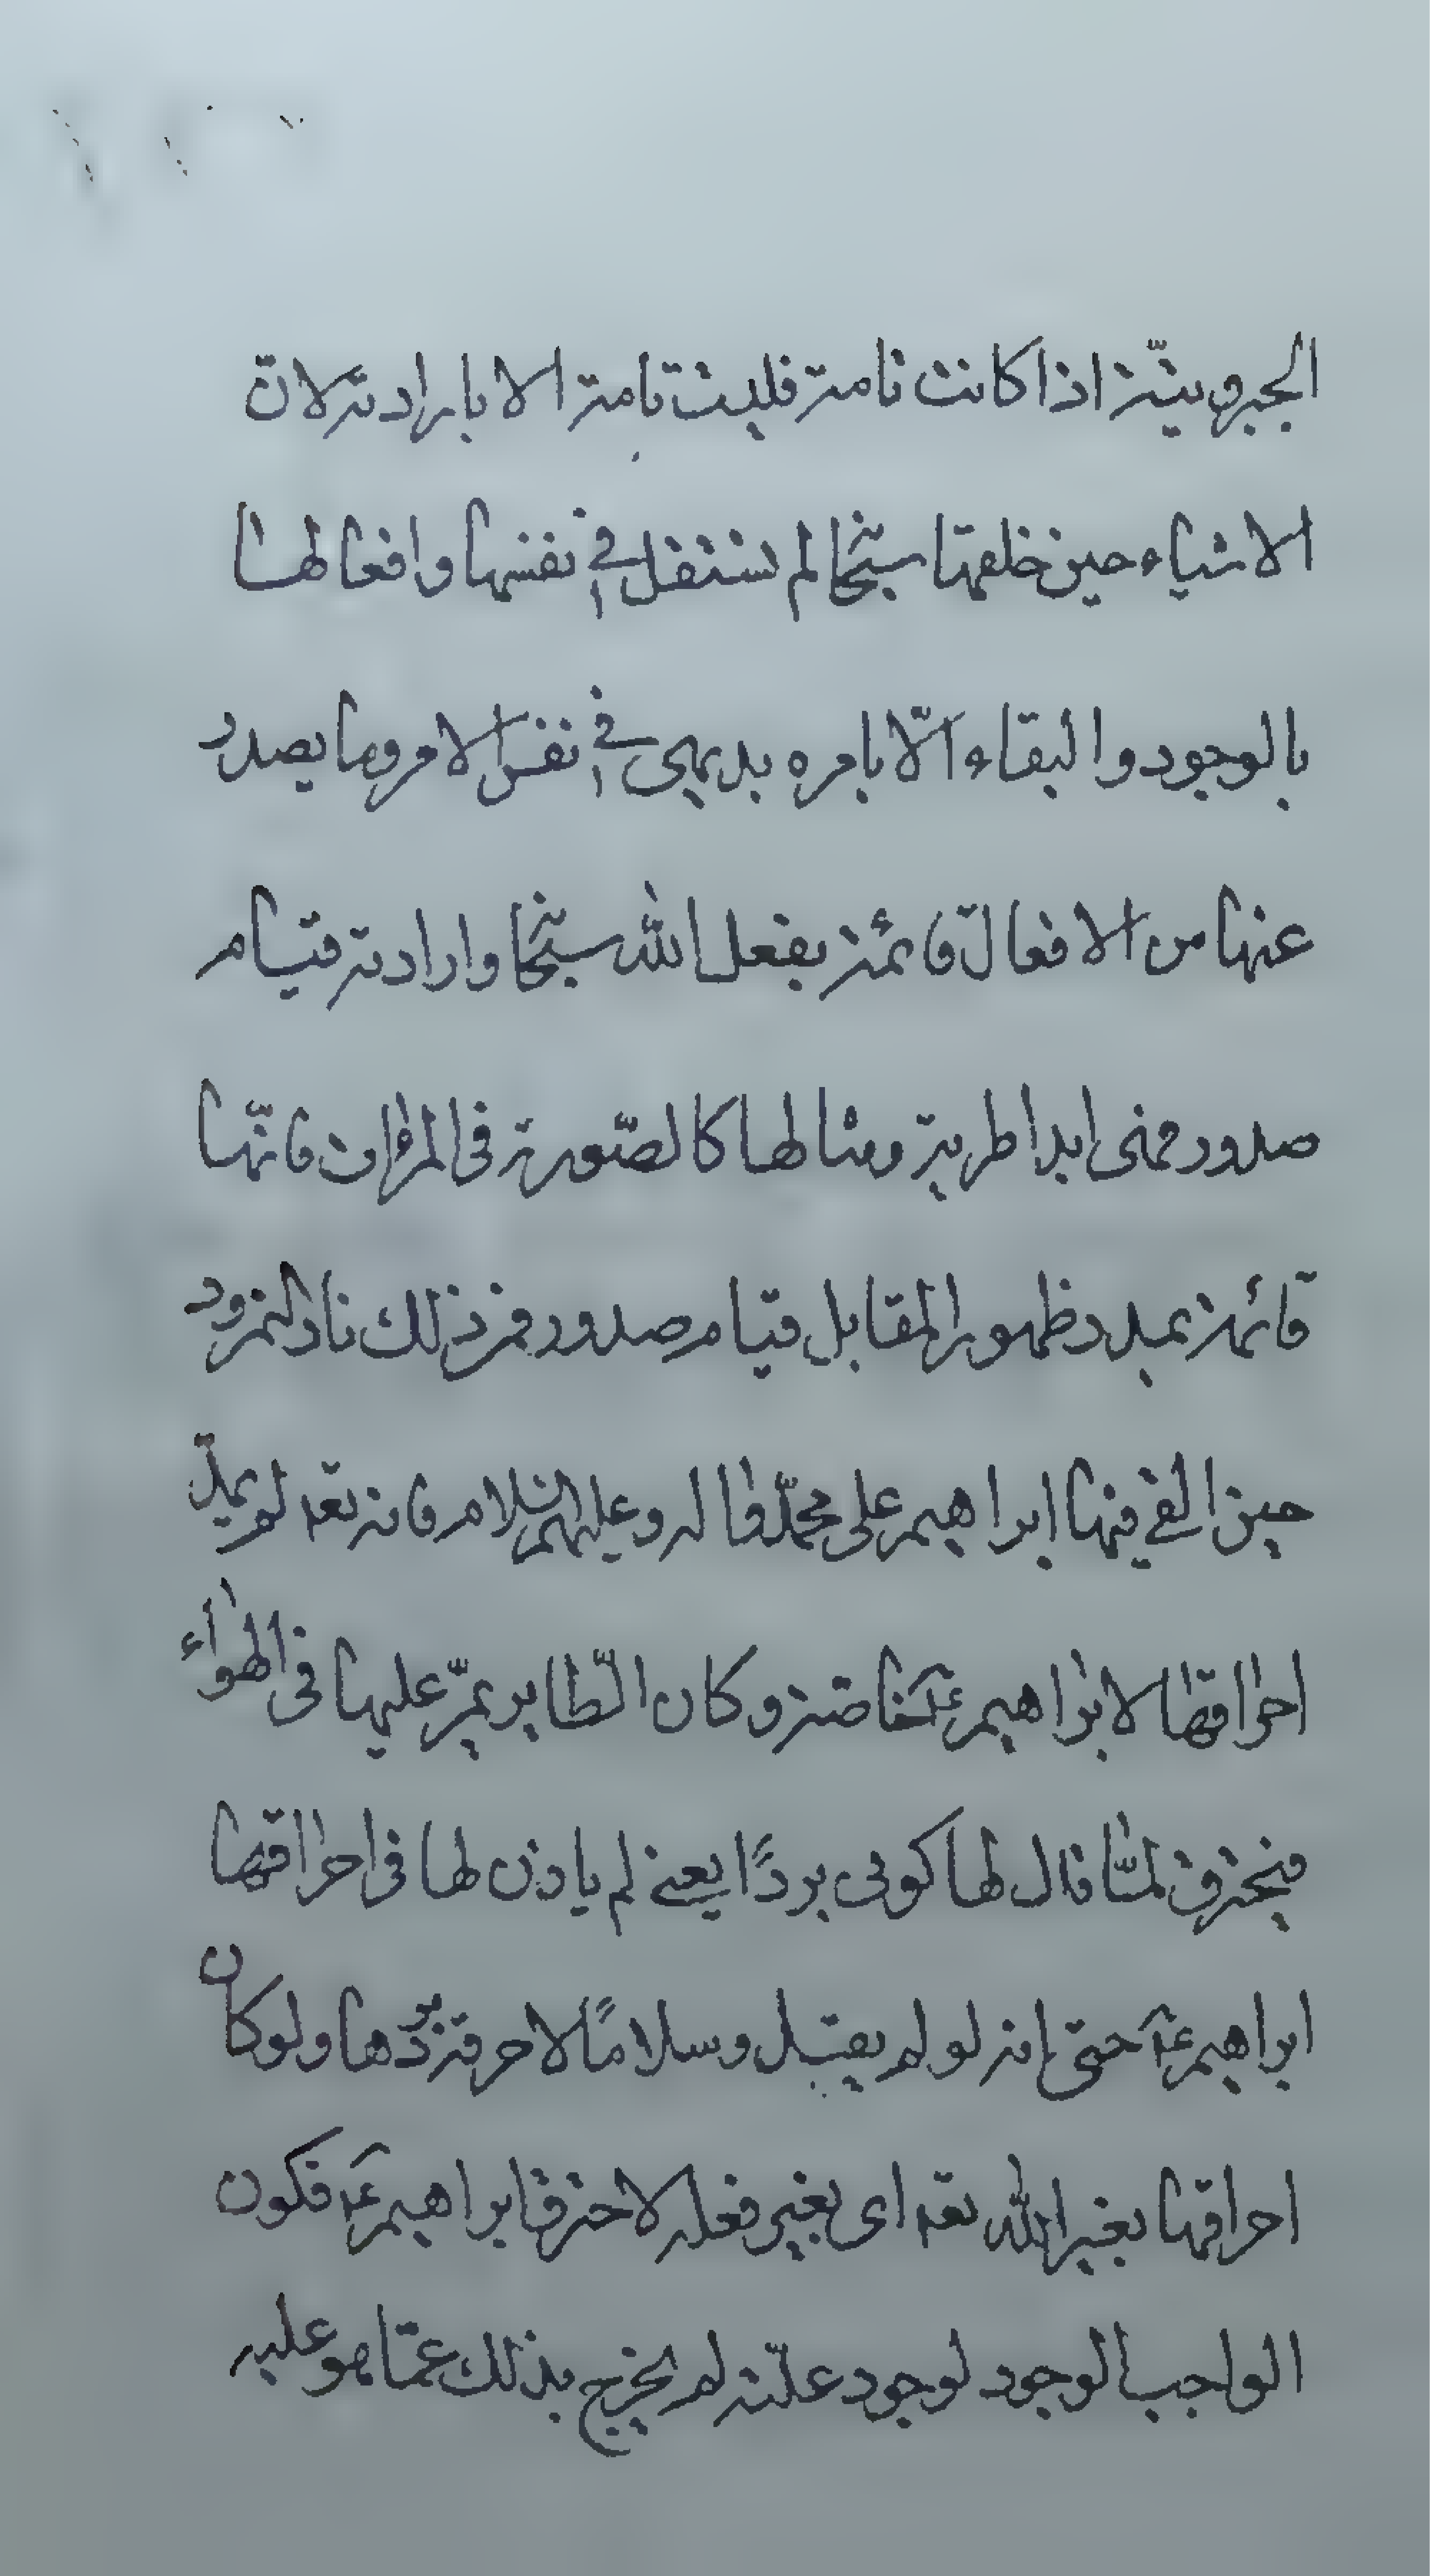 الجبروتيّة اذا كانت تامة فليست تامة الا بارادته لان
الاشياء حين خلقها سبحا لم تستقل في نفسها وافعالها
بالوجود والبقاء الّا بامره بديهى في نفس الامر وما يصدر
عنها من الافعال قائمة بفعل الله سبحا وارادته قيام
صدور يعنى ابدا طرية ومثالها كالصّورة فى المرٰات فانّها
قائمة بمدد ظهور المقابل قيام صدور فمن ذلك نار النمرود
حين القي فيها ابراهيم على محمّد واله وعليهم السلام فانه تعه لم يمدّ
احراقها لابراهيم عۤ خاصة وكان الطّاير يمرّ عليها فى الهوآء
فيحترق لمّا قال لها كونى بردًا يعنے لم ياذن لها فى احراقها
ابراهيم عۤ حتى انه لو لم يقل وسلامًا لاحرقه بردها ولو كان
احراقها بغير الله تعه اى بغير فعله لاحترق ابراهيم عۤ فكون
الواجب الوجود لوجود علّته لم يخرج بذلك عمّا هو عليه